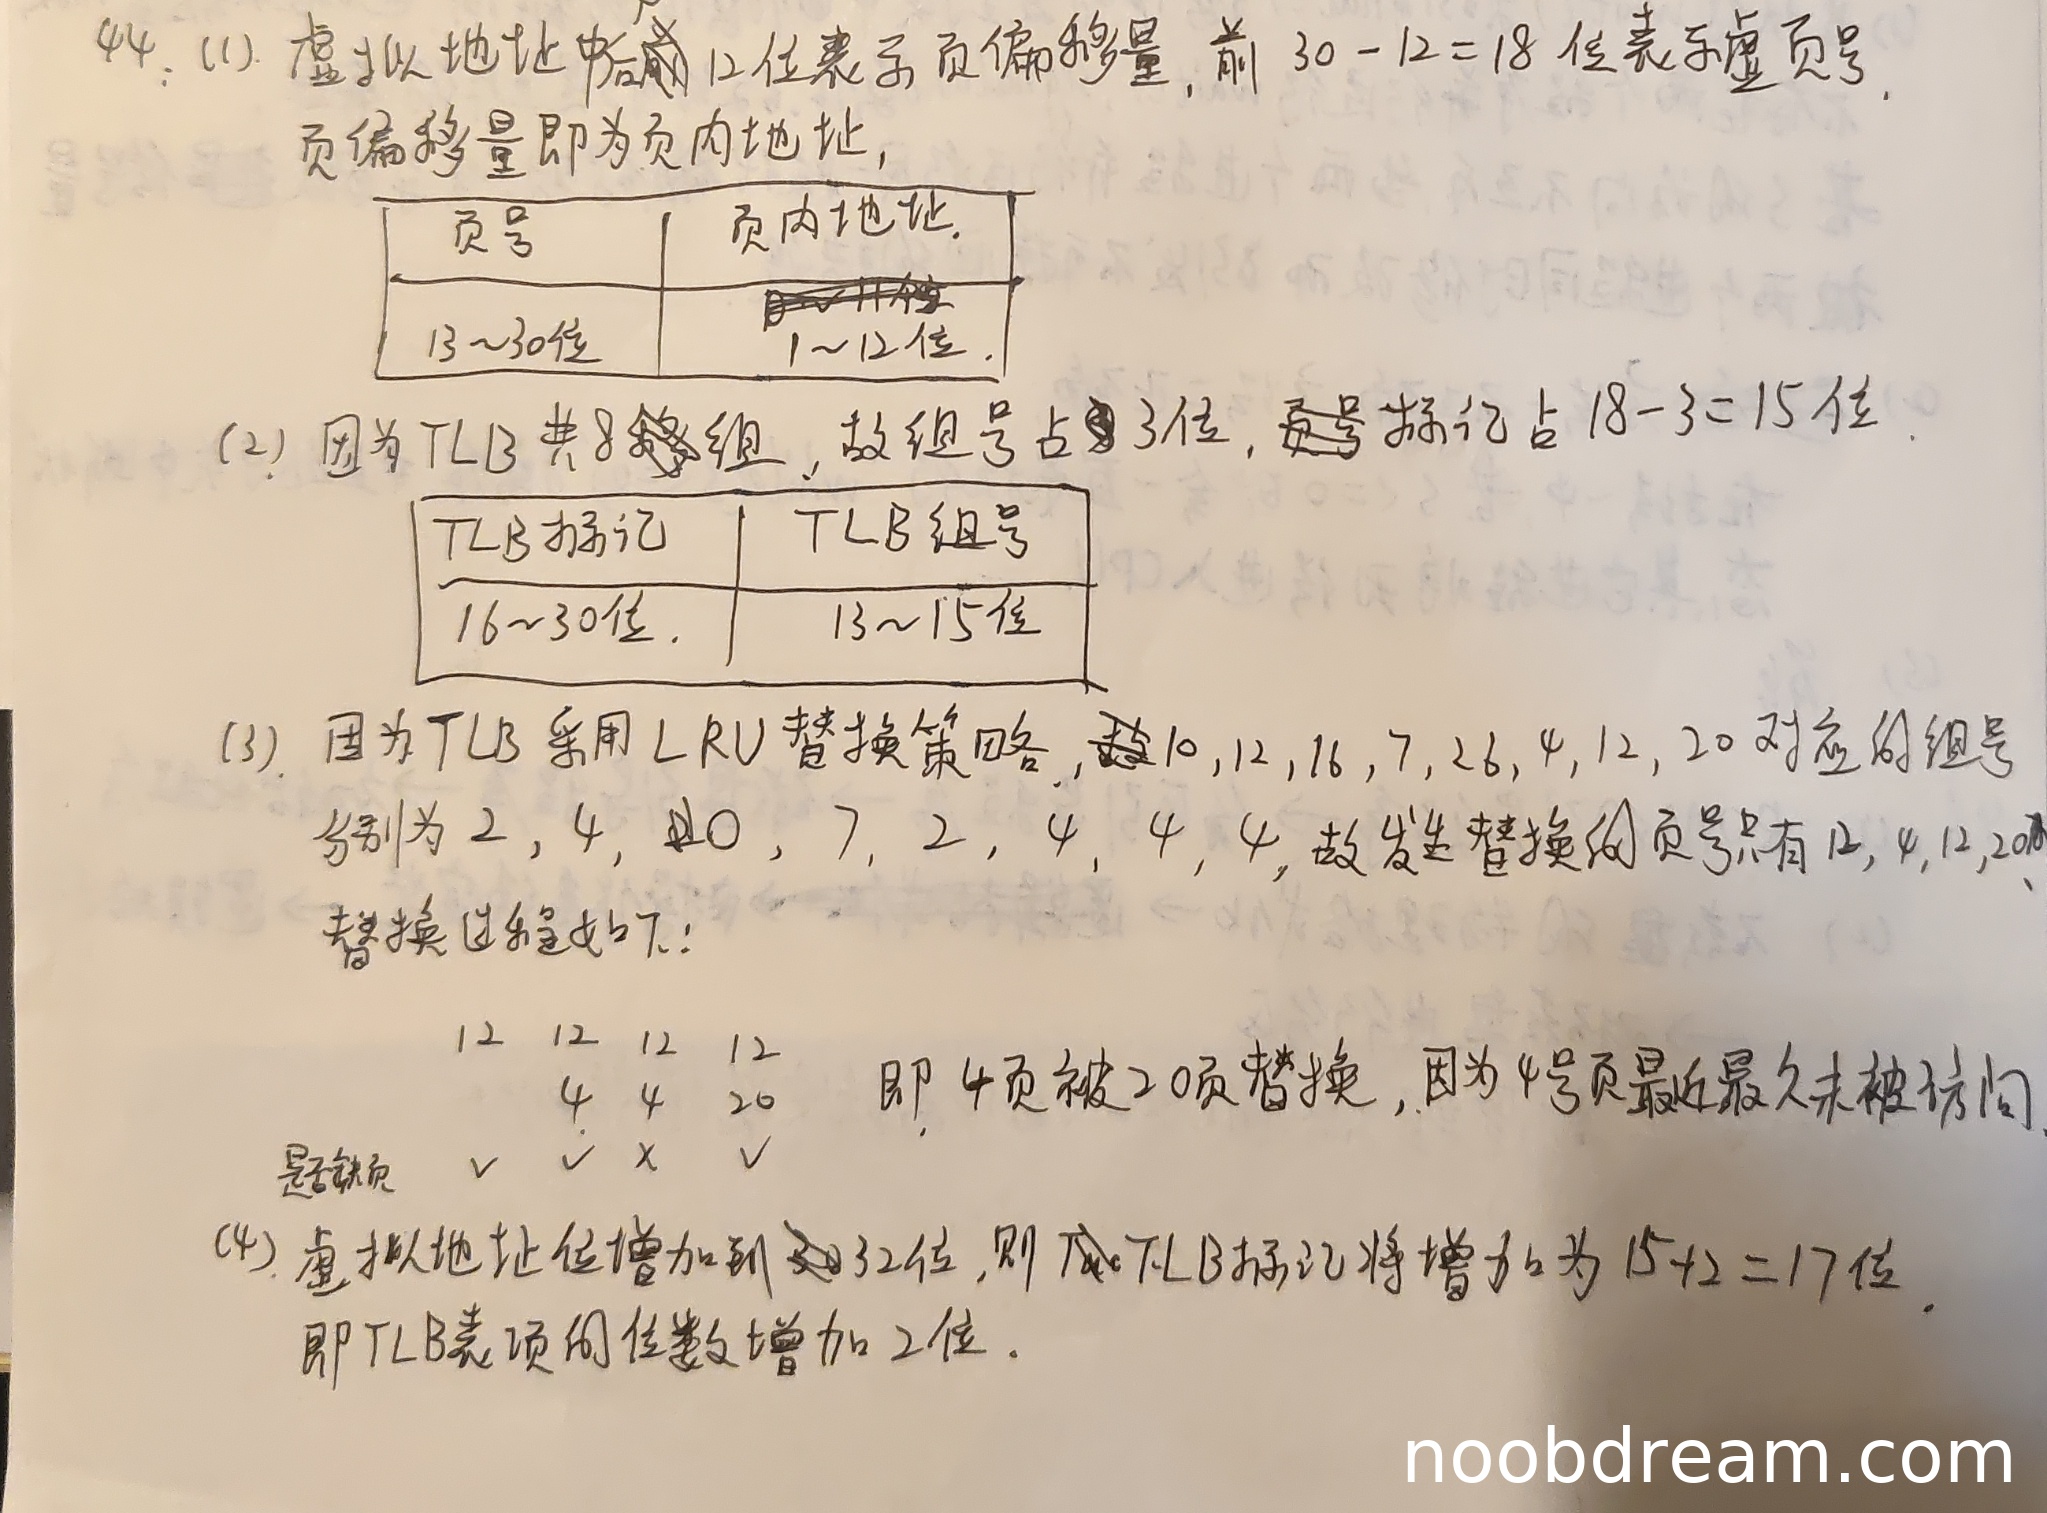 44. (1). 虚拟地址中后12位表示页偏移量, 前 30-12=18 位表示虚页号.
页偏移量即为页内地址,
页号 页内地址.
13~30位 1~12位.
(2) 因为TLB共8组, 故组号占3位, 标记占 18-3=15位.
TLB标记 TLB组号
16~30位. 13~15位
(3). 因为TLB采用LRU替换策略, 10, 12, 16, 7, 26, 4, 12, 20 对应的组号
分别为 2, 4, 0, 7, 2, 4, 4, 4, 故发生替换的页号只有 12, 4, 12, 20
替换过程如下:
12 12 12 12
4 4 20 即 4页被20页替换, 因为4号页最近最久未被访问.
是否缺页 ✓ ✓ × ✓
(4). 虚拟地址位增加到32位, 则TLB标记将增加为 15+2=17位.
即TLB表项的位数增加2位.
noobdream.com